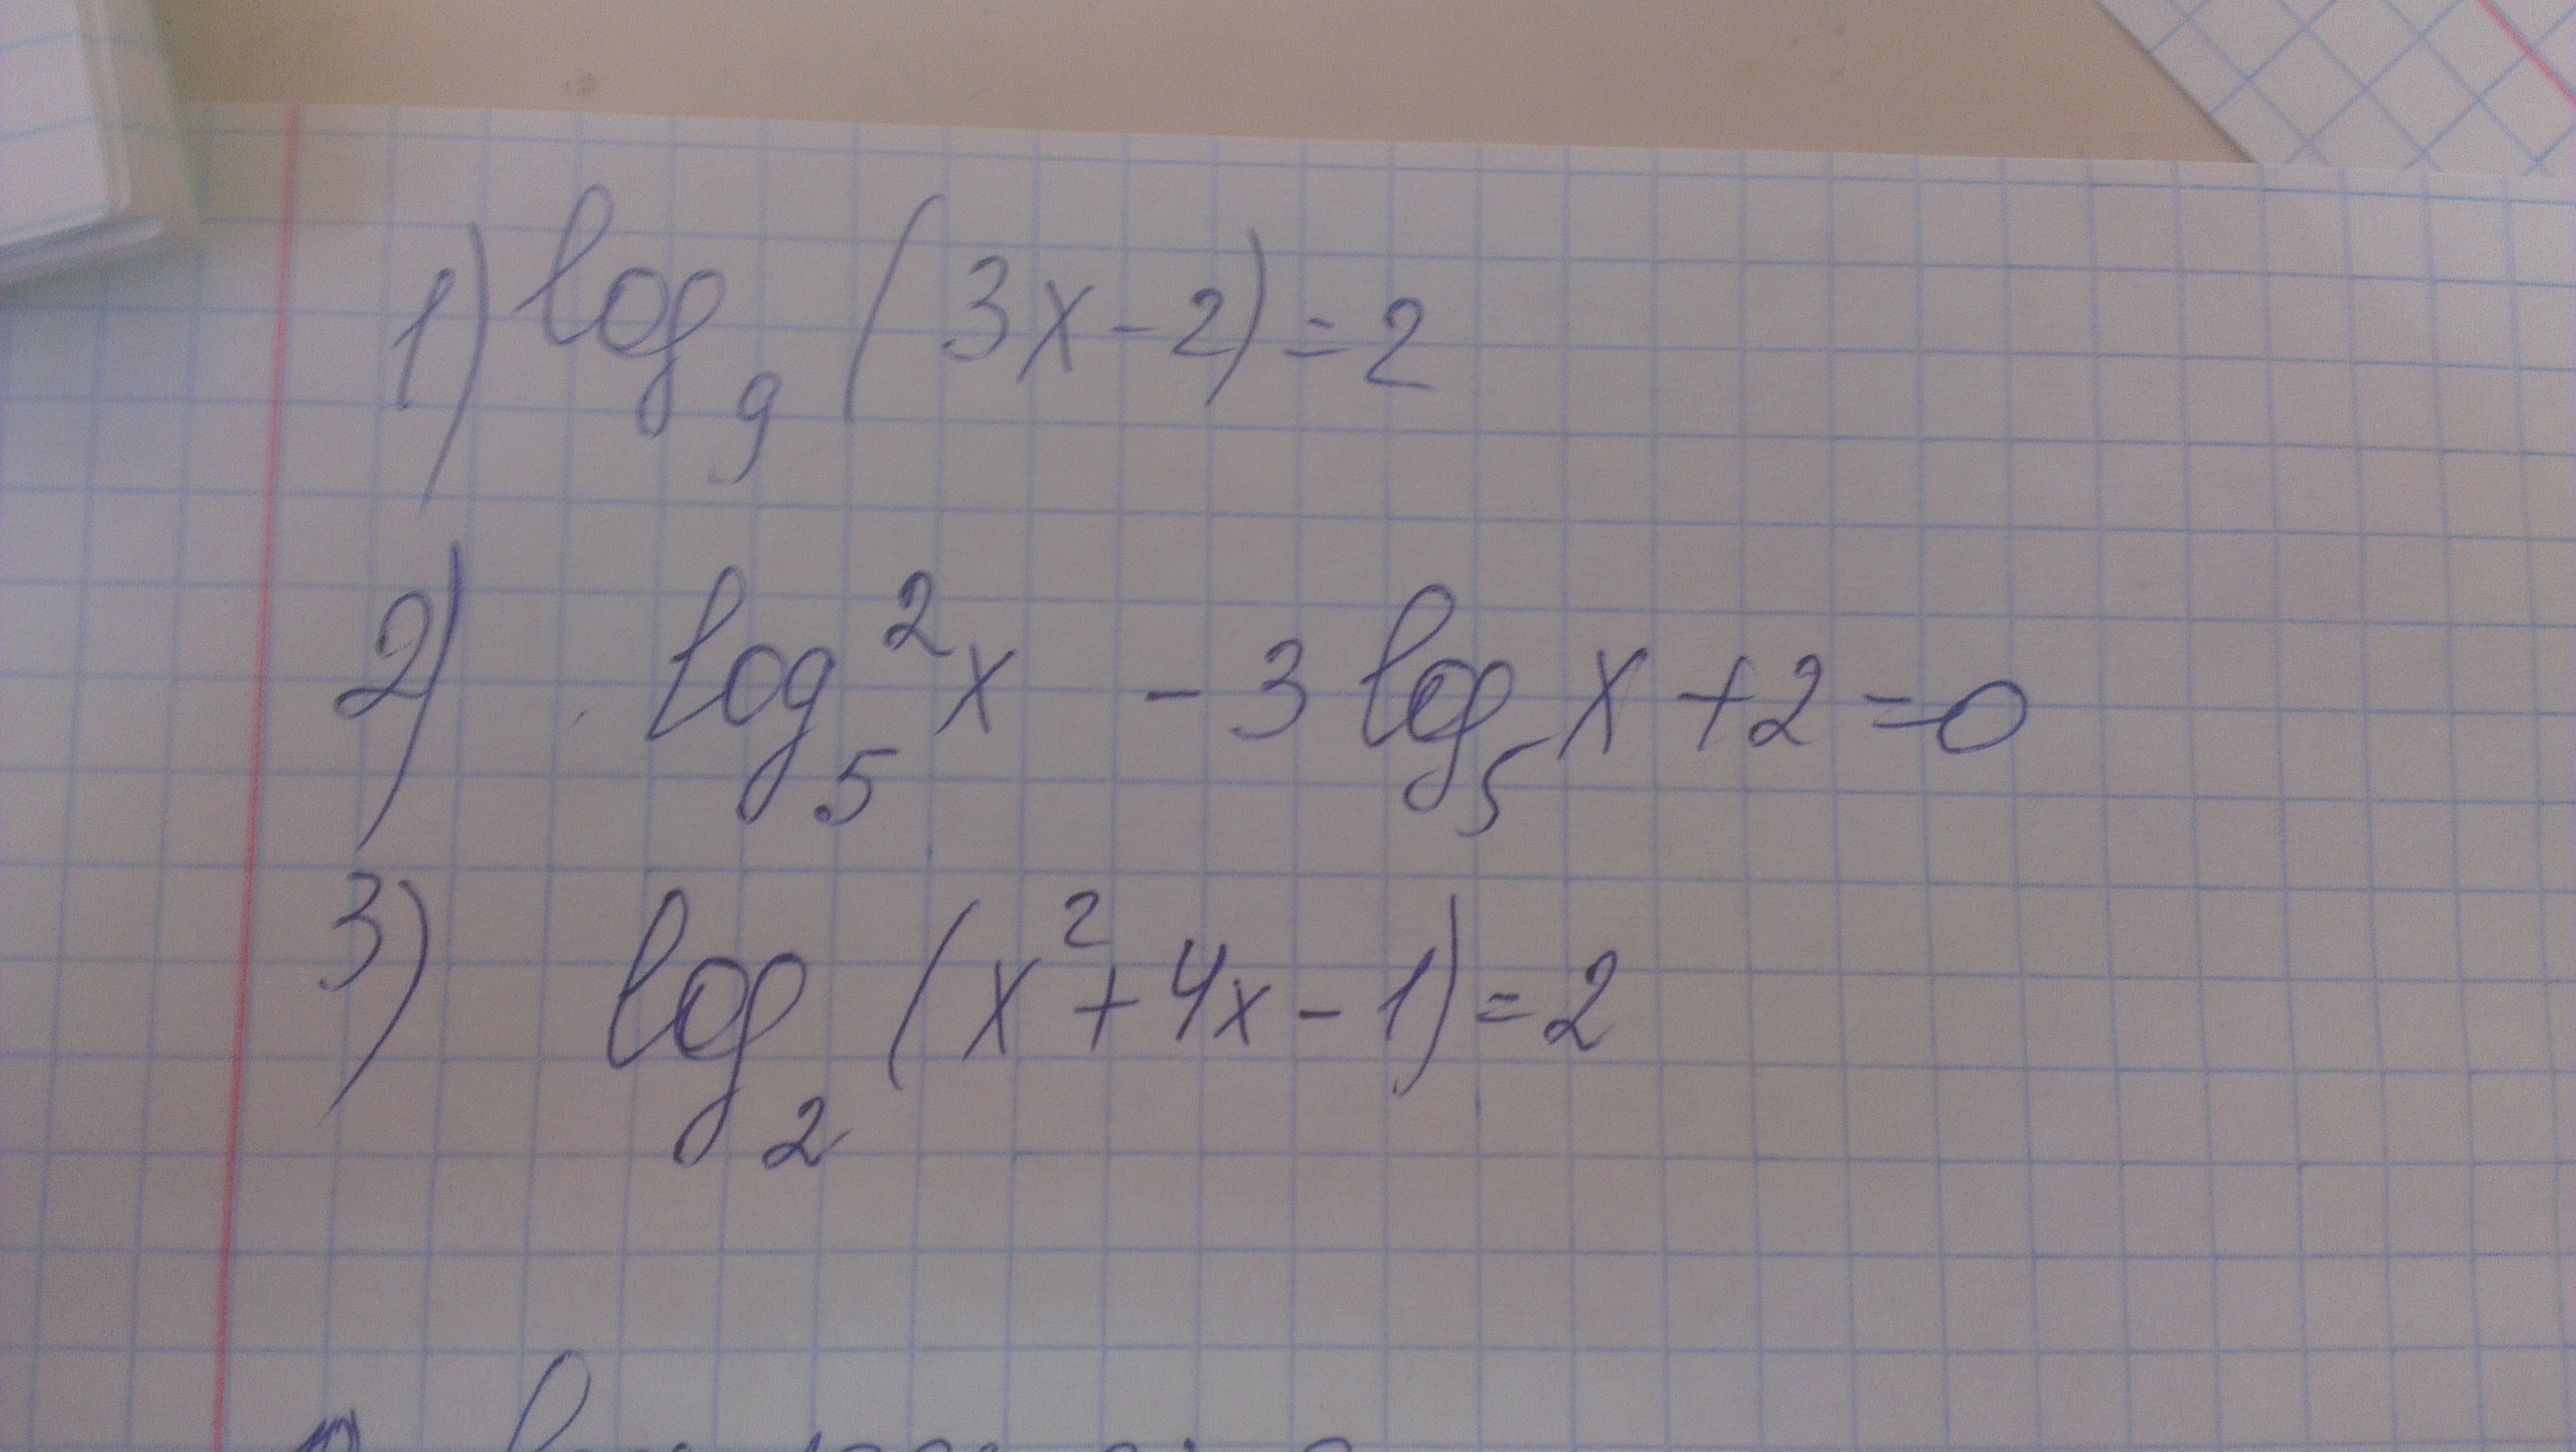 1) log₉ (3x-2)=2
2) log₅²x - 3 log₅ x +2=0
3) log₂ (x²+4x-1)=2